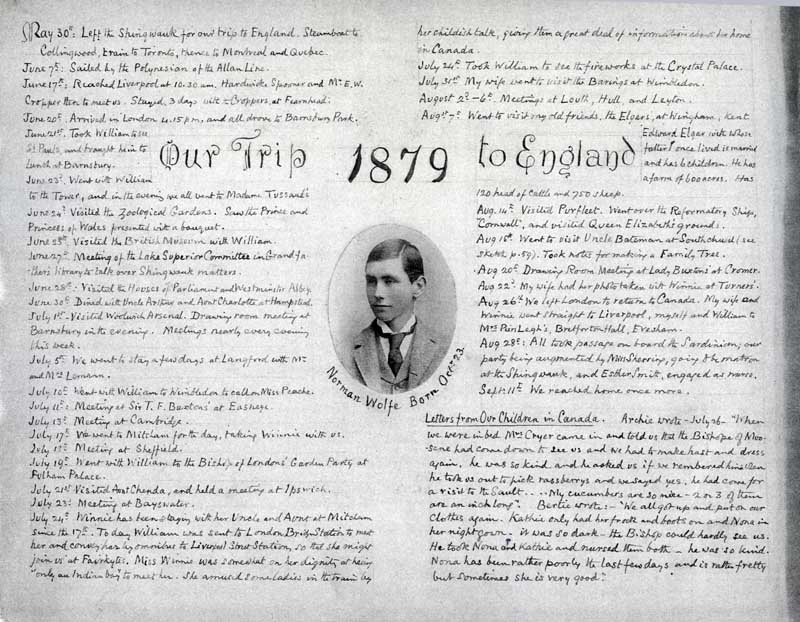 May 30th: Left the Shingwauk for our trip to England. Steamboat to
Collingwood, train to Toronto, thence to Montreal and Quebec.
June 7th: Sailed by the Polynesian of the Allan Line.
June 17th: Reached Liverpool at 10.30 am. Hardwick Spooner and Mr E.W.
Cropper then to meet us. Stayed 3 days with the Croppers, at Fearnhead.
June 20th. Arrived in London 4.15 p.m, and all drove to Barnsbury Park.
June 21st. Took William to see
St Pauls, and brought him to
lunch at Barnsbury.
June 23d. Went with William
to the Tower, and in the evening we all went to Madame Tussauds
June 24th Visited the Zoological Gardens. Saw the Prince and
Princess of Wales presented with a bouquet.
June 25th. Visited the British Museum with William.
June 27th Meeting of the Lake Superior Committee in Grandfa-
thers library to talk over Shingwauk matters.
June 28th: Visited the Houses of Parliament and Westminster Abbey.
June 30th Dined with Uncle Arthur and Aunt Charlotte at Hampstead.
July 1st - Visited Woolwich Arsenal. Drawing room meeting at
Barnsbury in the evening. Meetings nearly every evening
this week.
July 5th We went to stay a few days at Langford with Mr
and Mrs Lemann.
July 10th Went with William to Wimbledon to call on Miss Peache.
July 11th: Meeting at Sir T. F. Buxtons' at Easneye.
July 13th Meeting at Cambridge.
July 17th We went to Mitcham for the day, taking Winnie with us.
July 18th Meeting at Sheffield.
July 19th. Went with William to the Bishop of Londons' Garden Party at
Fulham Palace.
July 21st Visited Aunt Chenda, and held a meeting at Ipswich.
July 23d Meeting at Bayswater.
July 24th Winnie has been staying with her Uncle and Aunt at Mitcham
since the 17th. To day William was sent to London Bridge Station to meet
her and convey her by omnibus to Liverpool Street Station, so that she might
join us at Fairkytes. Miss Winnie was somewhat on her dignity at having
"only an Indian boy" to meet her. She amused some ladies in the train by
Our Trip 1879 to England
Norman Wolfe Born Octr 23.
her childish talk, giving them a great deal of information about her home
in Canada.
July 24th Took William to see the fireworks at the Crystal Palace.
July 31st My wife went to visit the Barings at Wimbledon.
August 2d - 6th. Meetings at Louth, Hull, and Leyton.
Augst 7th Went to visit my old friends, the Elgars, at Wingham, Kent
Edward Elgar with whose
father I once lived is married
and has 6 children. He has
a farm of 600 acres. Has
120 head of cattle and 750 sheep.
Aug. 14th Visited Purfleet. Went over the Reformatory Ship,
"Cornwall", and visited Queen Elizabeth's grounds.
Aug 15th. Went to visit Uncle Bateman at Southchurch (see
sketch p. 59). Took notes for making a Family Tree.
Aug 20th Drawing Room Meeting at Lady Buxton's at Cromer.
Aug 22d. My wife had her photo taken with Winnie at Turners.
Aug 26th We left London to return to Canada. My wife and
Winnie went straight to Liverpool, myself and William to
Mrs Leigh's, Bretforton Hall, Evesham.
Aug 28th: All took passage on board the Sardinian; our
party being augmented by Miss going as matron
at the Shingwauk, and Esther Smith, engaged as nurse.
Sept: 11th We reached home once more.
Letters from Our Children in Canada. Archie wrote - July 26 - "When
we were in bed Mrs Cryer came in and told us that the Bishop of Moo-
sonee had come down to see us and we had to make hast and dress
again. he was so kind and he asked us if we rembered him when
he took us out to pick rassberrys and we sayed yes, he had come for
a visit to the Sault.... My cucumbers are so nice - 2 or 3 of them
are an inch long". Bertie wrote:- "We all got up and put on our
clothes again. Kathie only had her frock and boots on and Nona in
her night gown. it was so dark - the Bishop could hardly see us.
He took Nona and Kathie and nursed them both - he was so kind.
Nona has been rather poorly the last few days and is rather fretty
but sometimes she is very good".